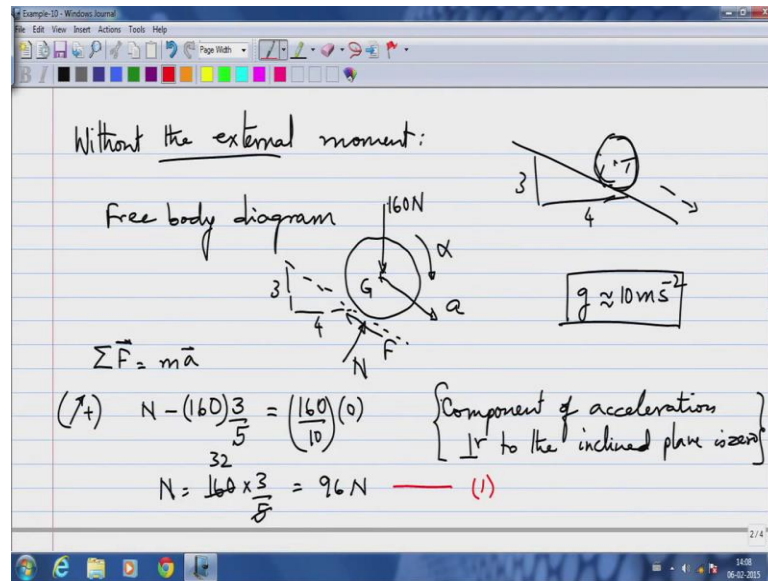 Example-10 - Windows Journal
File Edit View Insert Actions Tools Help
Page Width
B I
Without the external moment:
3
4
Free body diagram
160N
α
G
a
3
4
F
N
g ≈ 10 ms⁻²
ΣF⃗ = ma⃗
(↗+) N - (160) 3/5 = (160/10)(0)
{Component of acceleration
⊥r to the inclined plane is zero}
32
N = 160 × 3/5 = 96 N —— (1)
2/4
14:08
06-02-2015